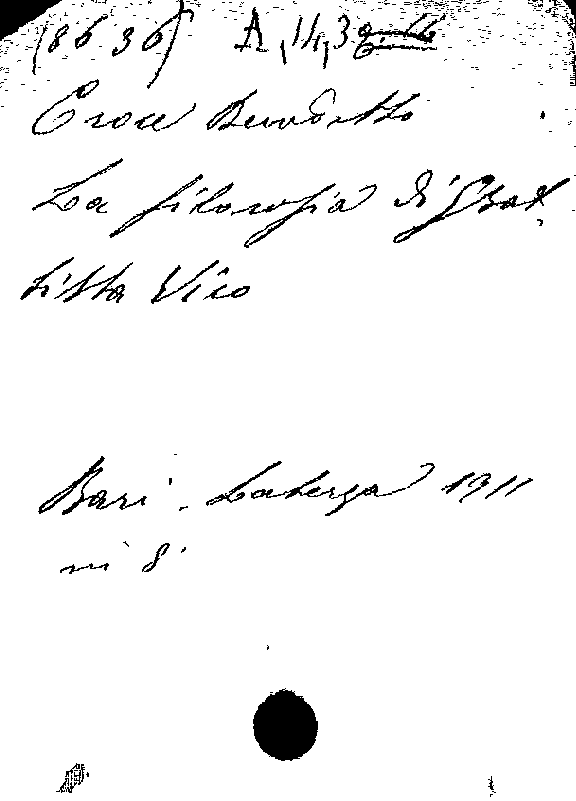 (8636) A, 14, 3
Croce Benedetto
La filosofia di G Bat
tista Vico
Bari. Laterza 1911
in 8°